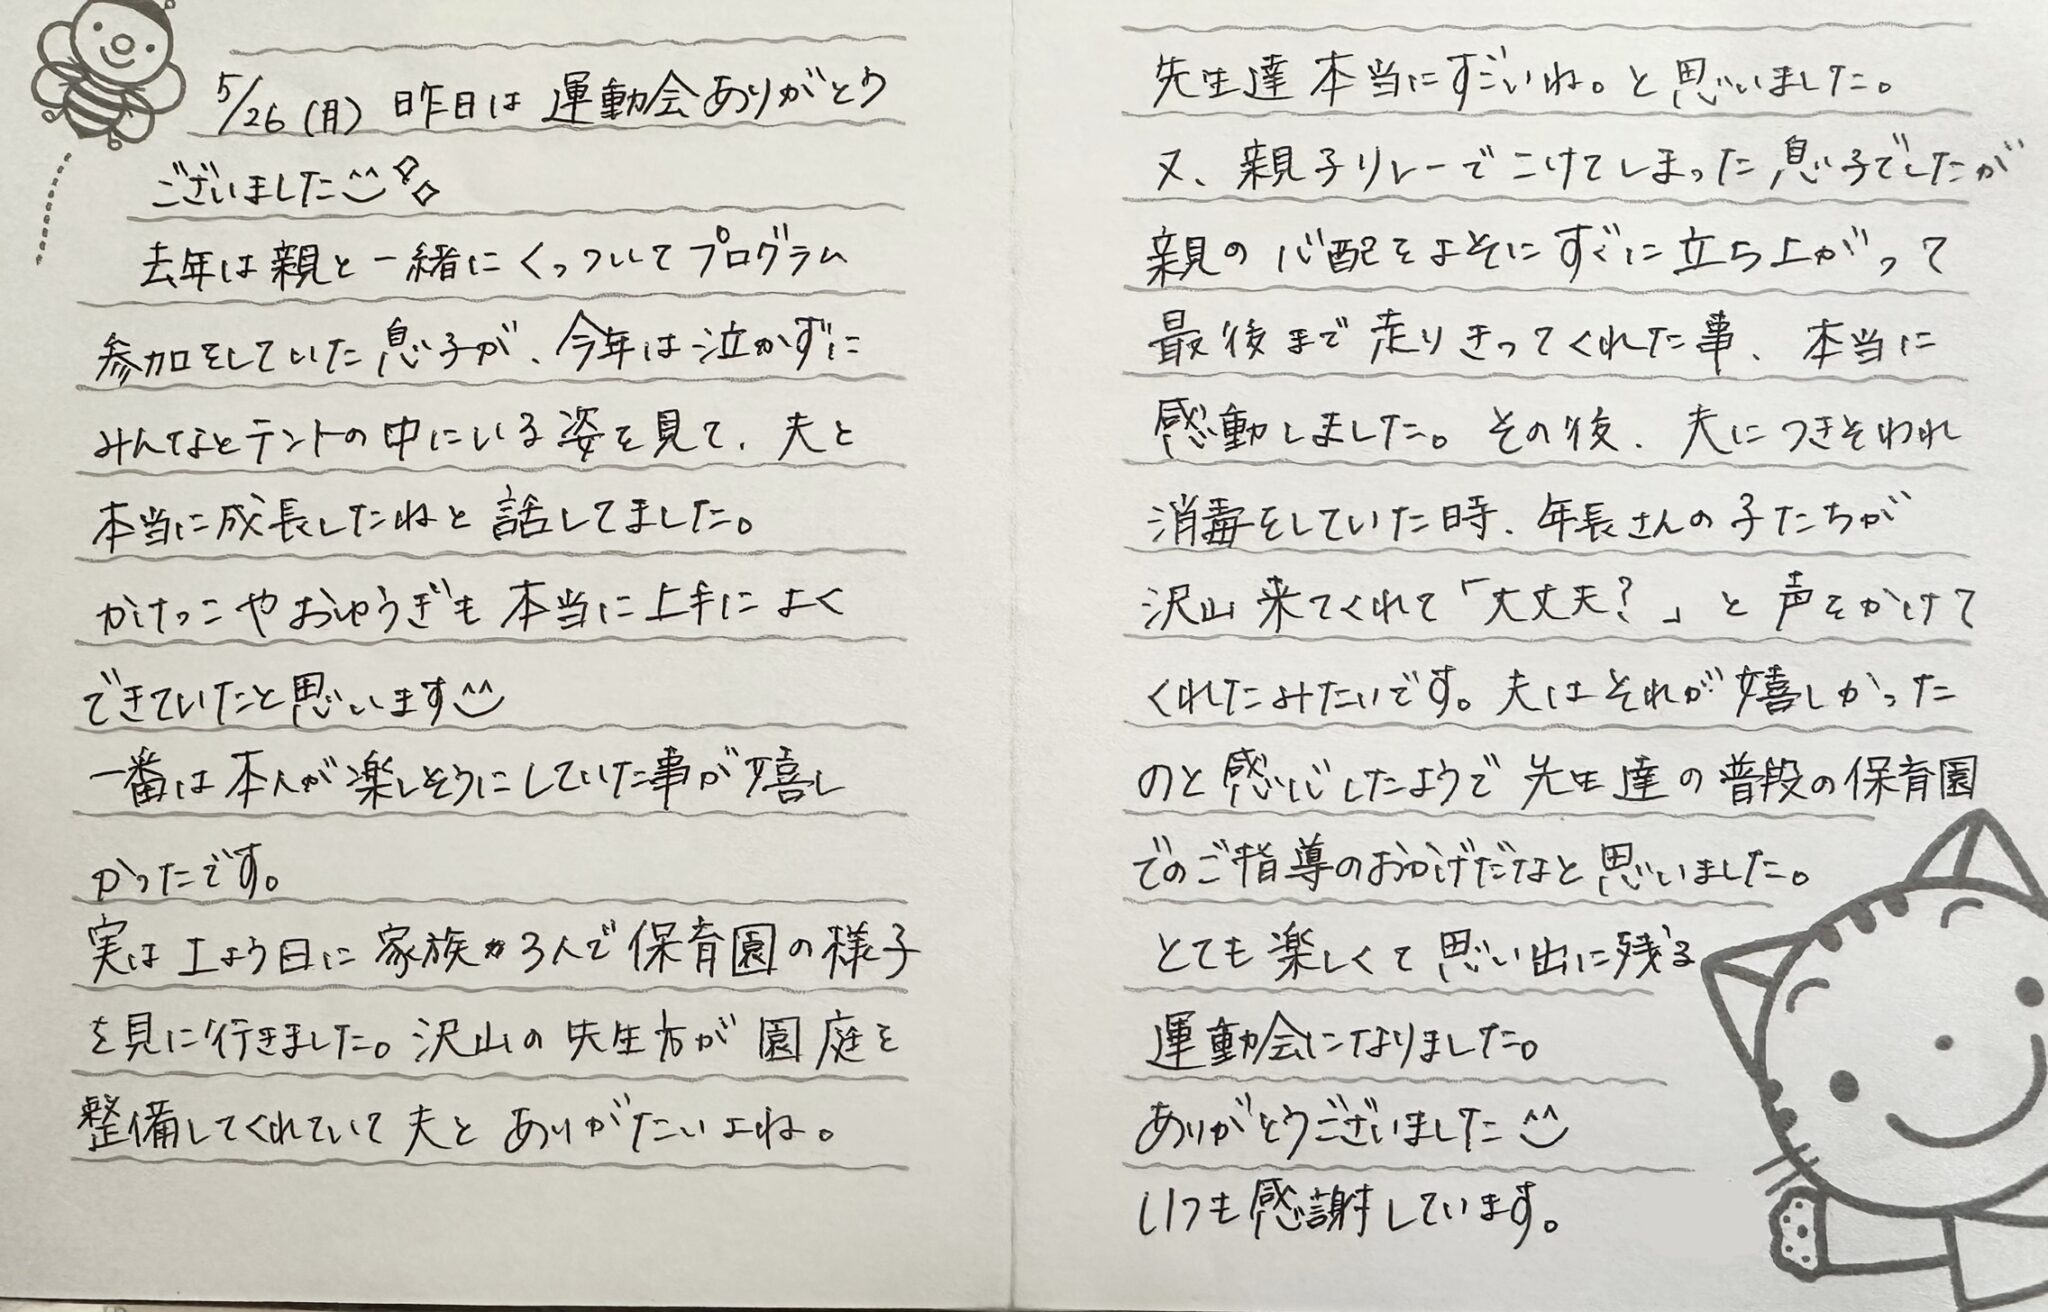 5/26(月) 昨日は運動会ありがとう
ございました^^
去年は親と一緒にくっついてプログラム
参加をしていた息子が、今年は泣かずに
みんなとテントの中にいる姿を見て、夫と
本当に成長したねと話してました。
かけっこやおゆうぎも本当に上手によく
できていたと思います^^
一番は本人が楽しそうにしていた事が嬉し
かったです。
実は土よう日に家族3人で保育園の様子
を見に行きました。沢山の先生方が園庭を
整備してくれていて夫とありがたいよね。
先生達本当にすごいね。と思いました。
又、親子リレーでこけてしまった息子でしたが
親の心配をよそにすぐに立ち上がって
最後まで走りきってくれた事、本当に
感動しました。その後、夫につきそわれ
消毒をしていた時、年長さんの子たちが
沢山来てくれて「大丈夫?」と声をかけて
くれたみたいです。夫はそれが嬉しかった
のと感心したようで先生達の普段の保育園
でのご指導のおかげだなと思いました。
とても楽しくて思い出に残る
運動会になりました。
ありがとうございました^^
いつも感謝しています。